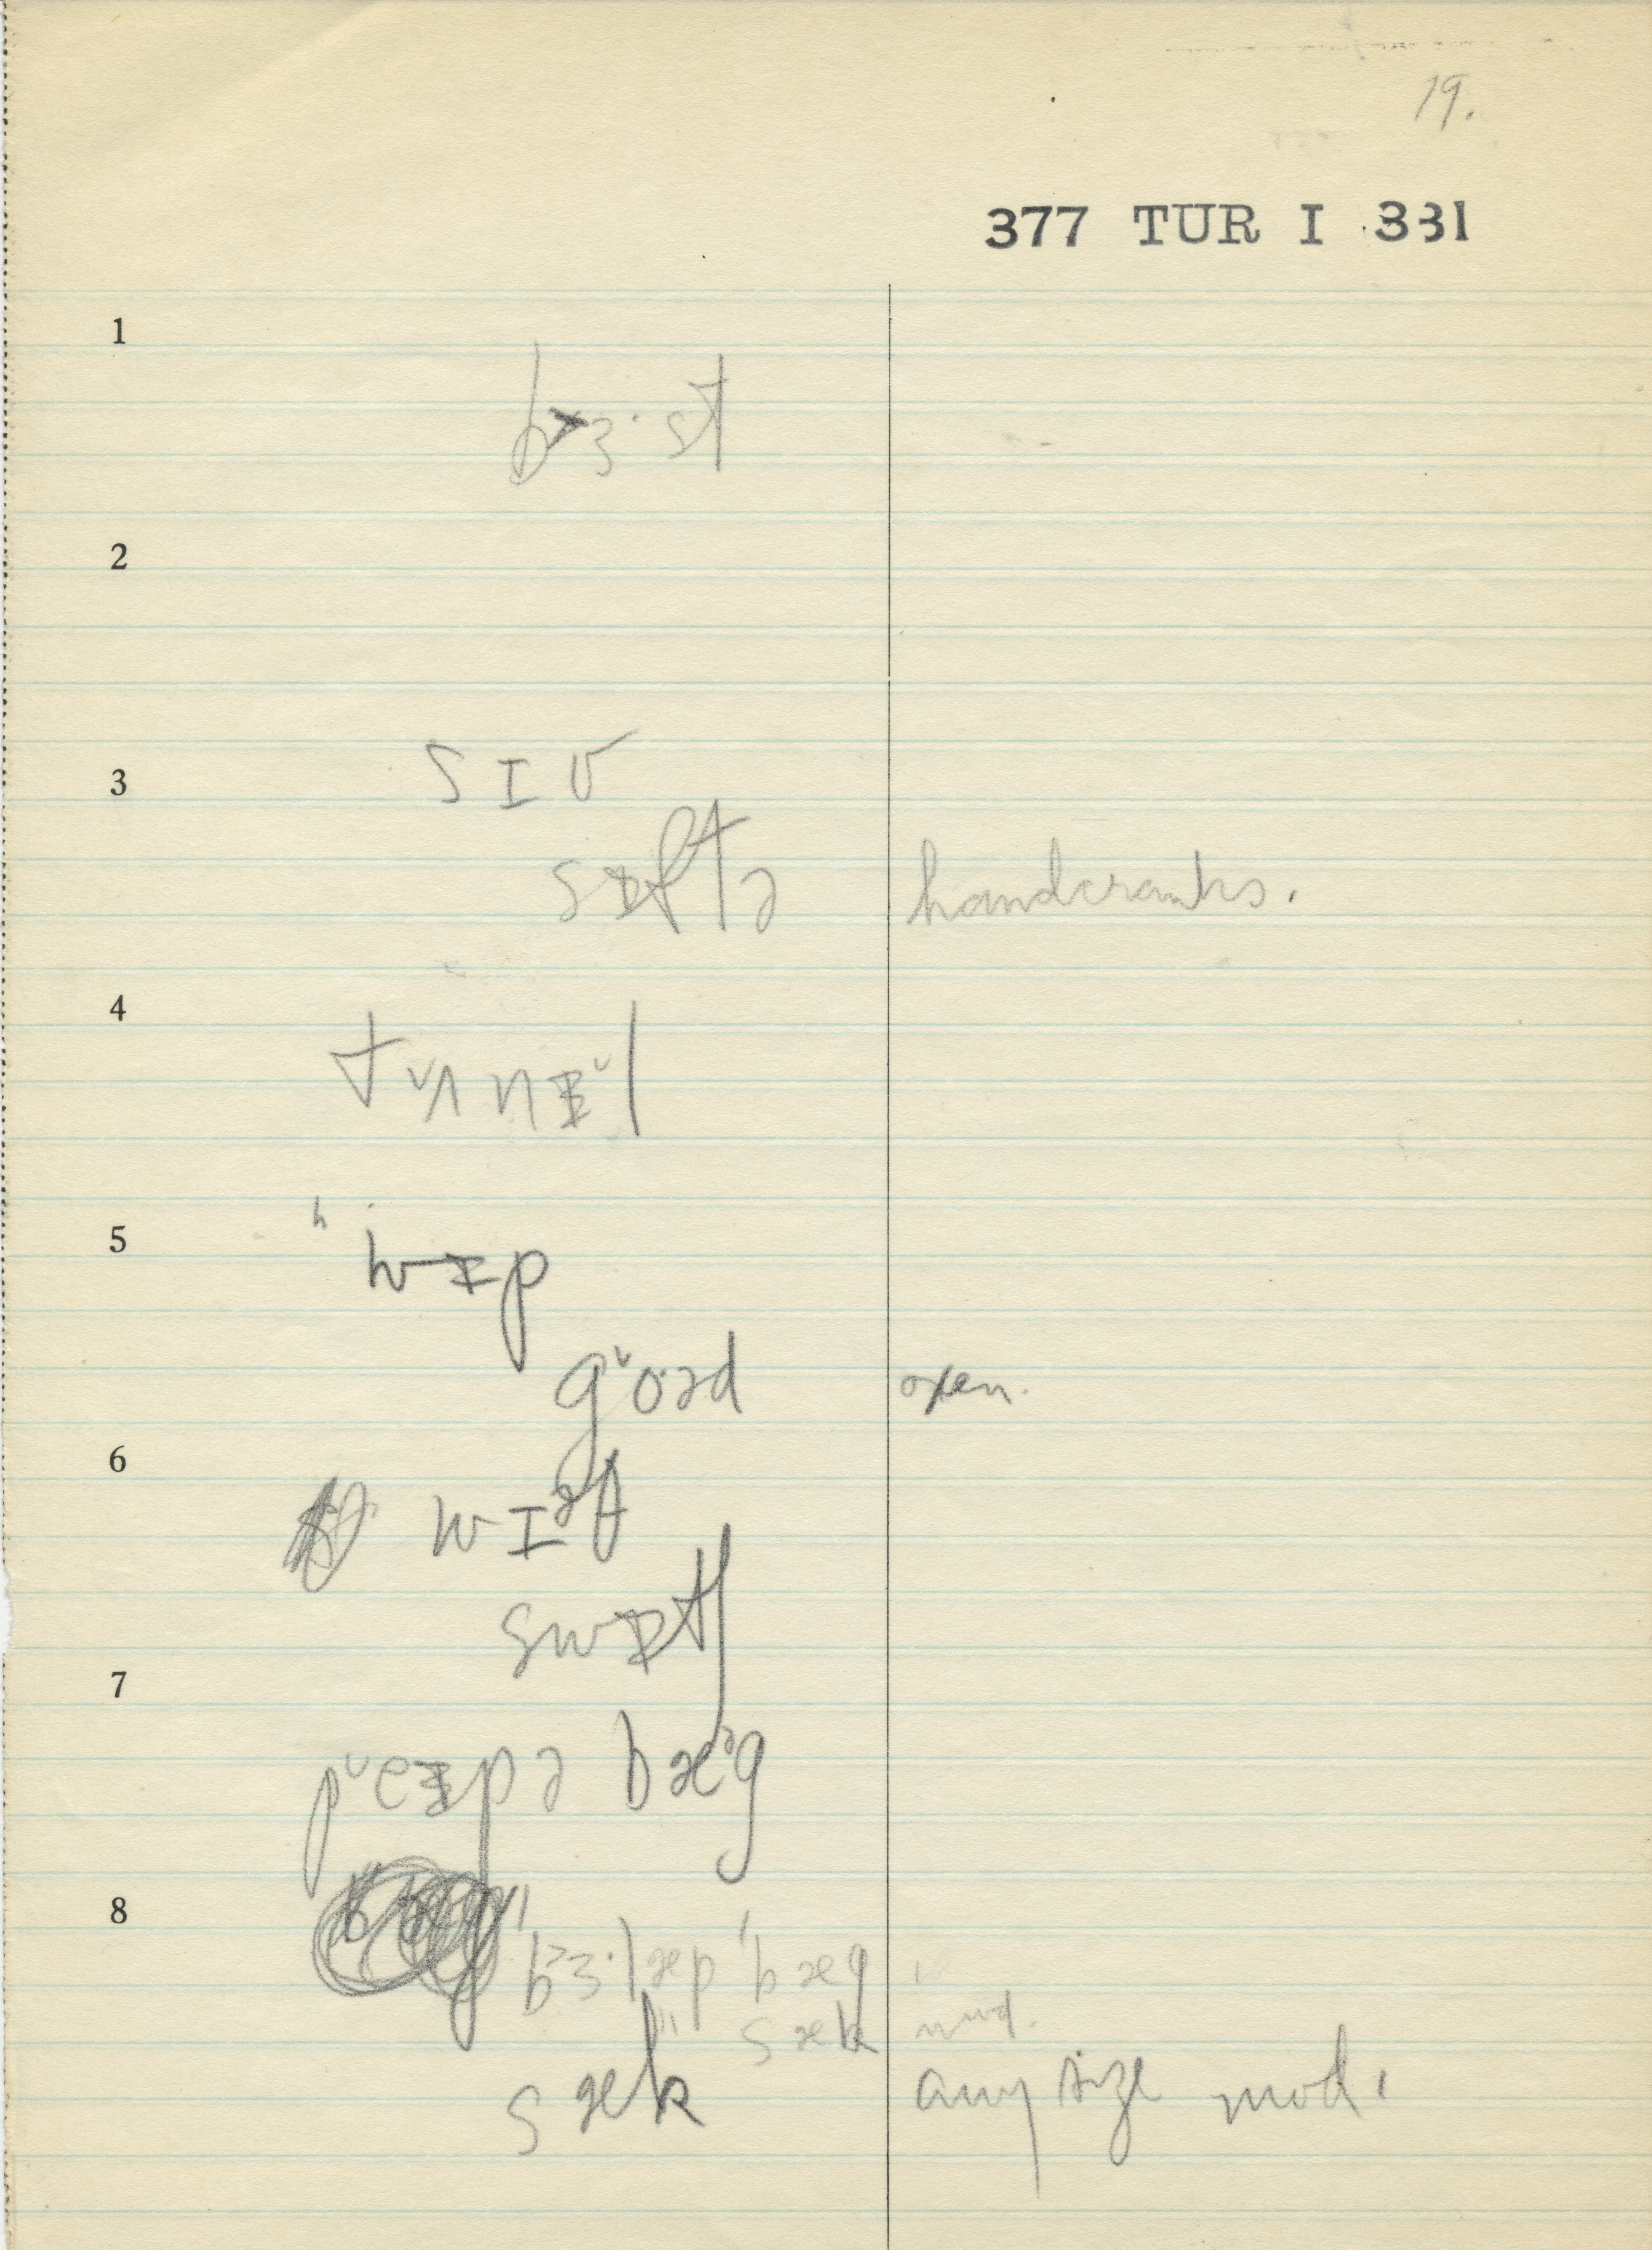 19.
377 TUR I 331
1
bɜ·st
2
3
sɪv
sɪftə handcranks.
4
tʌnɪl
5
hwɪp
goəd open.
6
wɪəf
swɪtʃ
7
peɪpə bæᵊg
8
bɜ·læp 'bæg
sæk mod.
sæk any size mod.